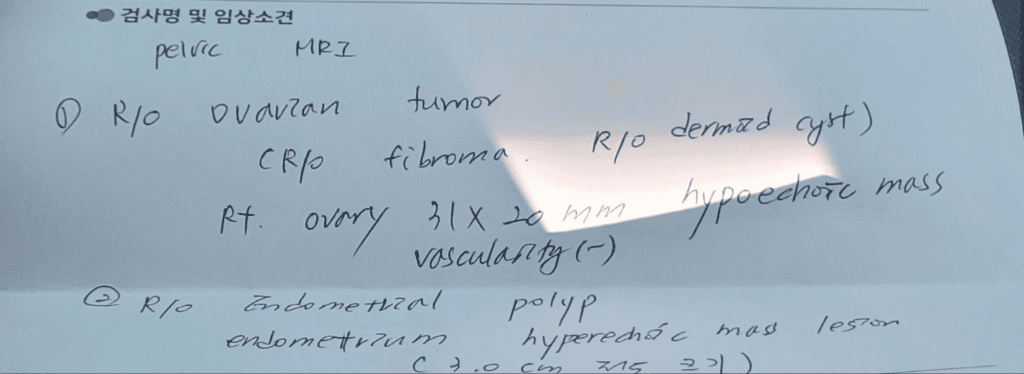 검사명 및 임상소견
pelvic MRI
① R/o ovarian tumor
(R/o fibroma. R/o dermoid cyst)
Rt. ovary 31 x 20 mm hypoechoic mass
vascularity (-)
② R/o Endometrial polyp
endometrium hyperechoic mass lesion
(3.0 cm 정도 크기)